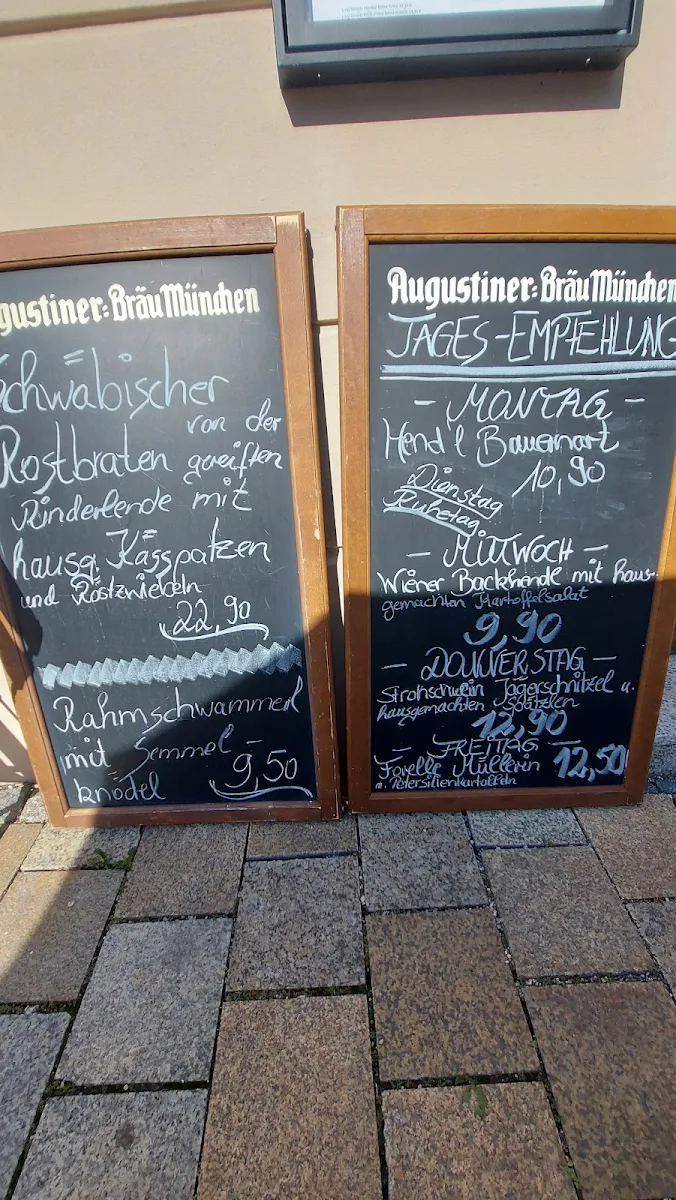 gustiner-Bräu München
Schwäbischer
von der
Rostbraten gereiften
Rinderlende mit
hausg. Kässpatzen
und Röstzwiebeln
22,90
Rahmschwammerl
mit Semmel-
knödel 9,50
Augustiner-Bräu München
TAGES-EMPFEHLUNG
- MONTAG -
Hend'l Bauernart
10,90
Dienstag
Ruhetag
- MITTWOCH -
Wiener Backhendl mit haus-
gemachten Kartoffelsalat
9,90
- DONNERSTAG -
Strohschwein Jägerschnitzel u.
hausgemachten Spätzlen
12,90
- FREITAG -
Forelle Müllerin 12,50
m. Petersilienkartoffeln